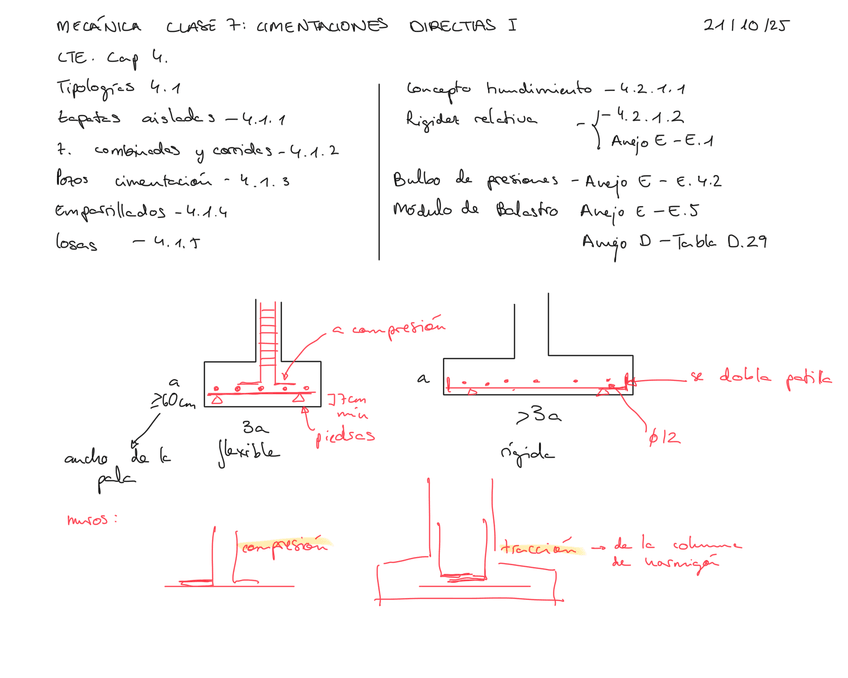 MECÁNICA CLASE 7: CIMENTACIONES DIRECTAS I 21/10/25
CTE. Cap 4.
Tipologías 4.1
Zapatas aisladas - 4.1.1
Z. combinadas y corridas - 4.1.2
Pozos cimentación - 4.1.3
Emparrillados - 4.1.4
losas - 4.1.5
Concepto hundimiento - 4.2.1.1
Rigidez relativa - 4.2.1.2
Anejo E - E.1
Bulbo de presiones - Anejo E - E.4.2
Módulo de Balastro Anejo E - E.5
Anejo D - Tabla D.29
a compresión
a
≥60cm
7cm
min
3a
piedras
flexible
ancho de la
pala
a
se dobla patilla
>3a
ϕ12
rígida
muros:
compresión
tracción → de la columna
de hormigón